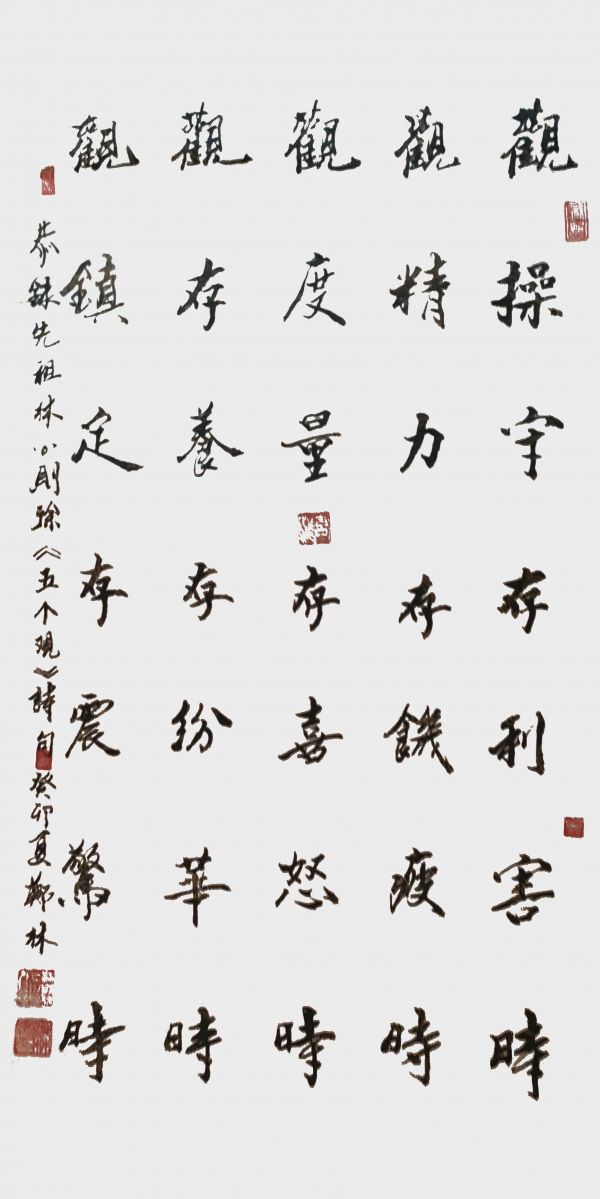 觀操守存利害時
觀精力存饑疲時
觀度量存喜怒時
觀存養存紛華時
觀鎮定存震驚時
恭錄先祖林公則徐《五个观》詩句癸卯夏鄭林